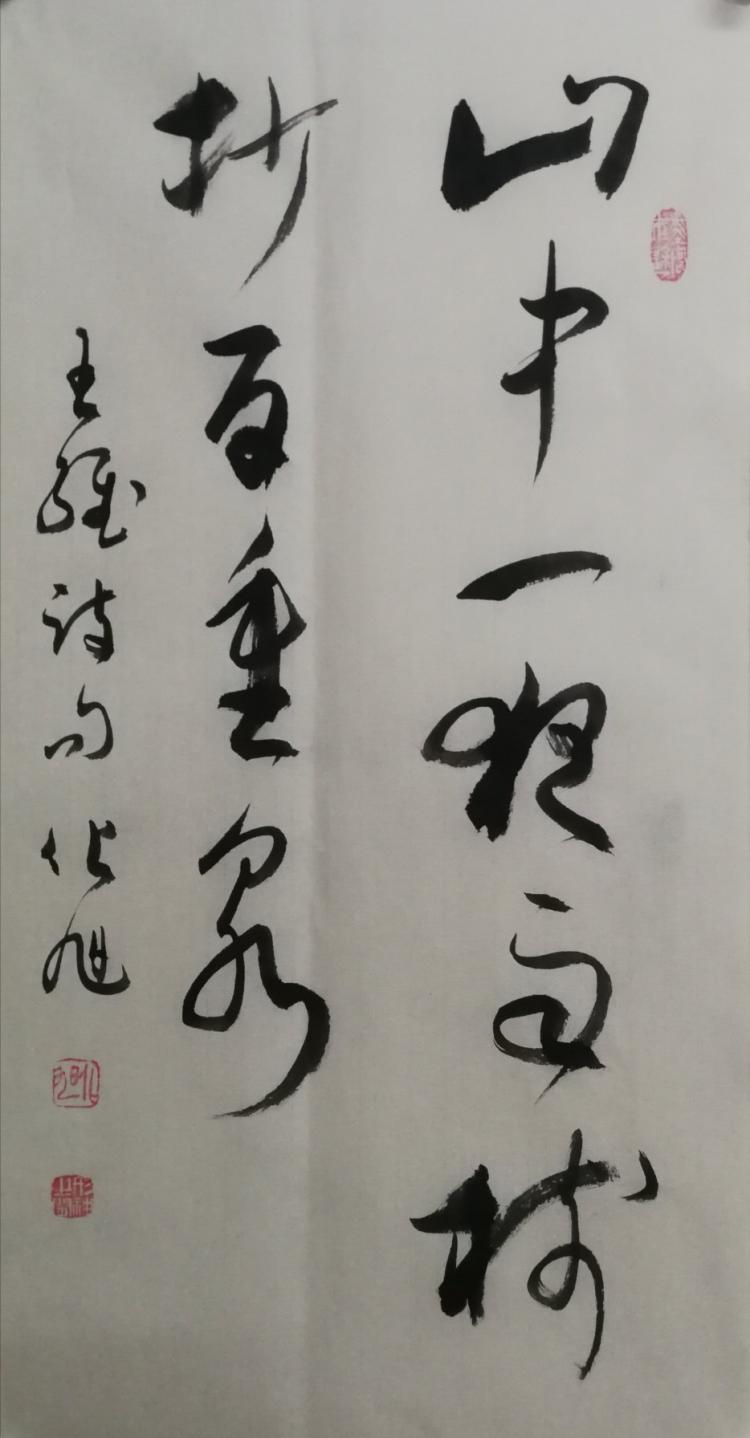 山中一夜雨树
杪百重泉
王维诗句 旭